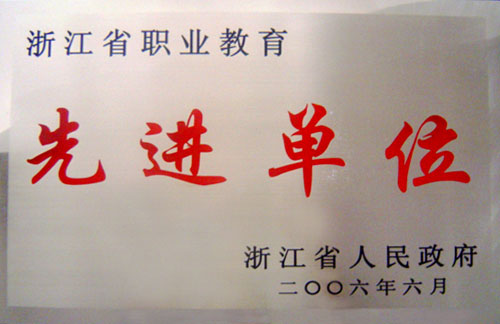 浙江省职业教育
先进单位
浙江省人民政府
二〇〇六年六月